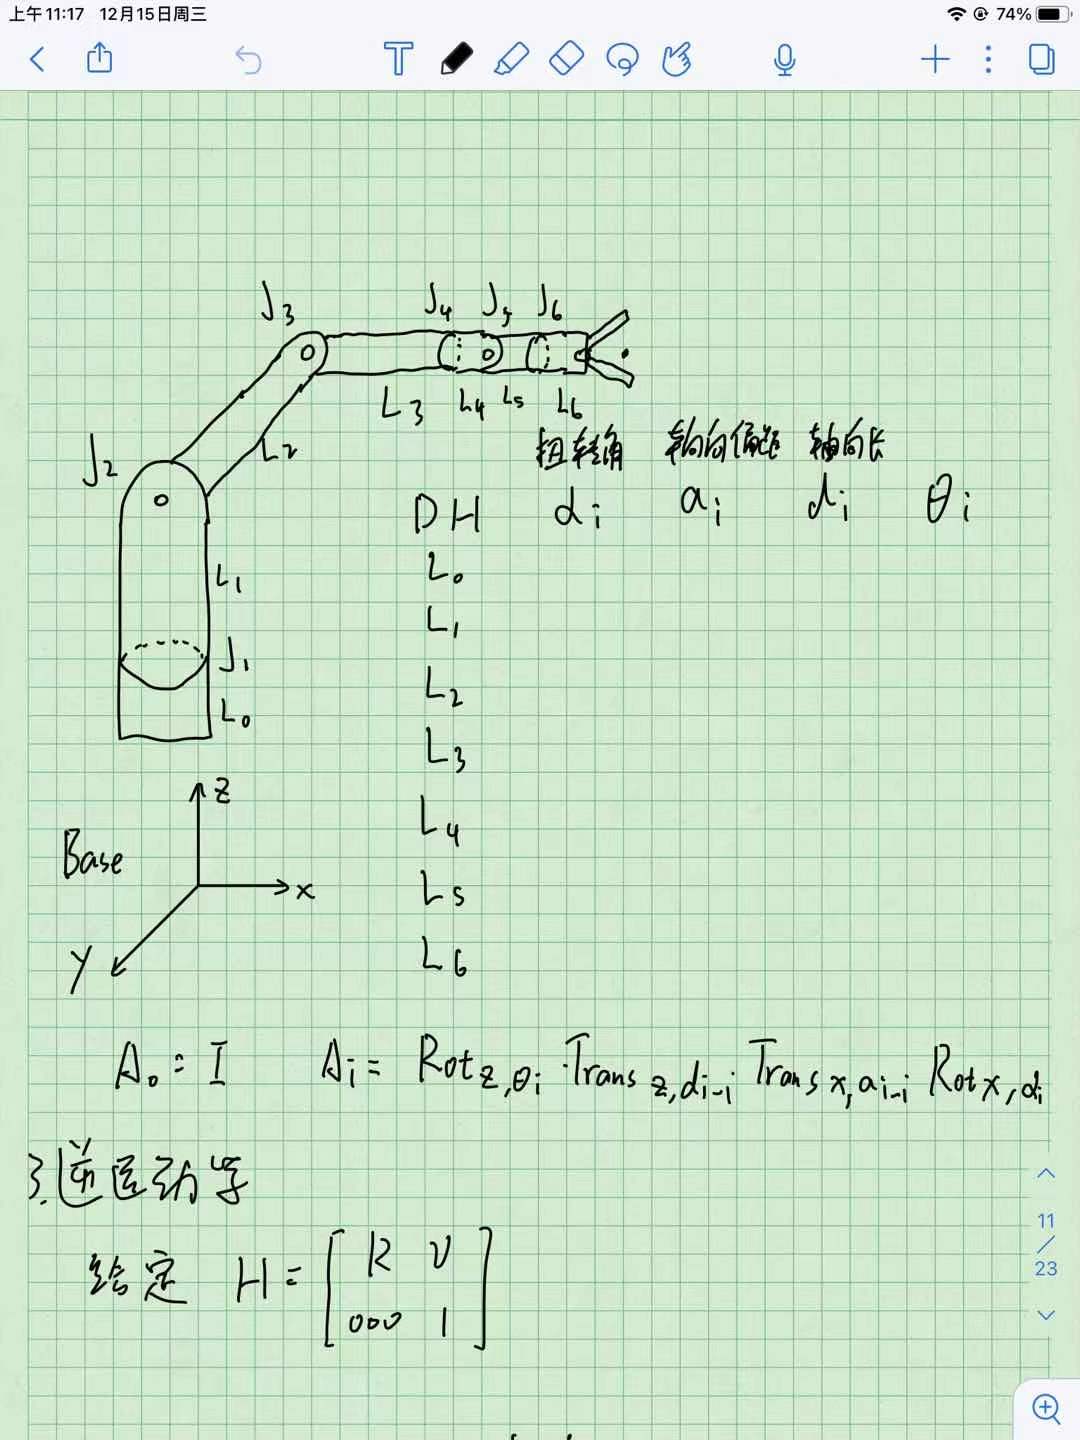 上午11:17 12月15日周三 74%
J3 J4 J5 J6
L3 L4 L5 L6
J2 L2
扭转角 轴向偏距 轴向长
DH αi ai di θi
L0
L1
L2
L3
L4
L5
L6
L1
J1
L0
Z
Base
X
Y
A0 = I Ai = Rot z,θi · Trans z,di-1 Trans x,ai-1 Rot x,αi
3.逆运动学
给定 H = [ R V
000 1 ]
11
/
23